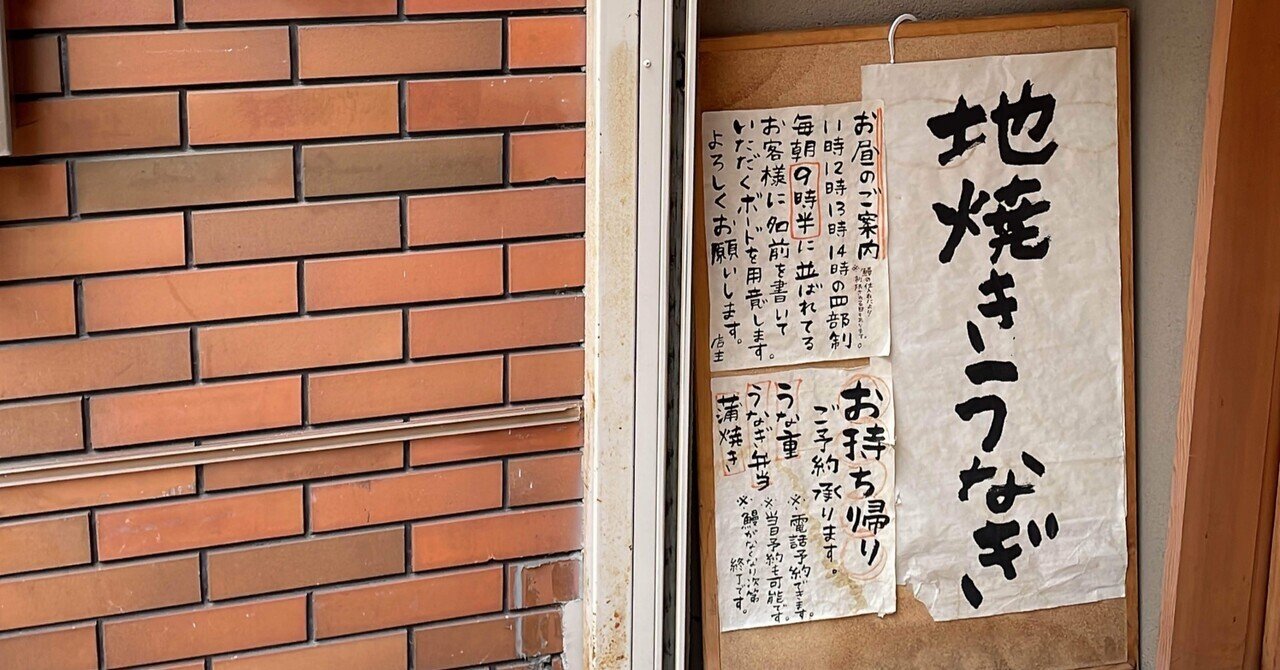 地焼きうなぎ
お昼のご案内
11時12時13時14時の四部制。
毎朝9時半に並ばれてる
お客様に名前を書いて
いただくボードを用意します。
よろしくお願いします。
店主
お持ち帰り
ご予約承ります。
うな重
うなぎ弁当
蒲焼き
※電話予約できます。
※当日予約も可能です。
※鰻がなくなり次第
終了です。